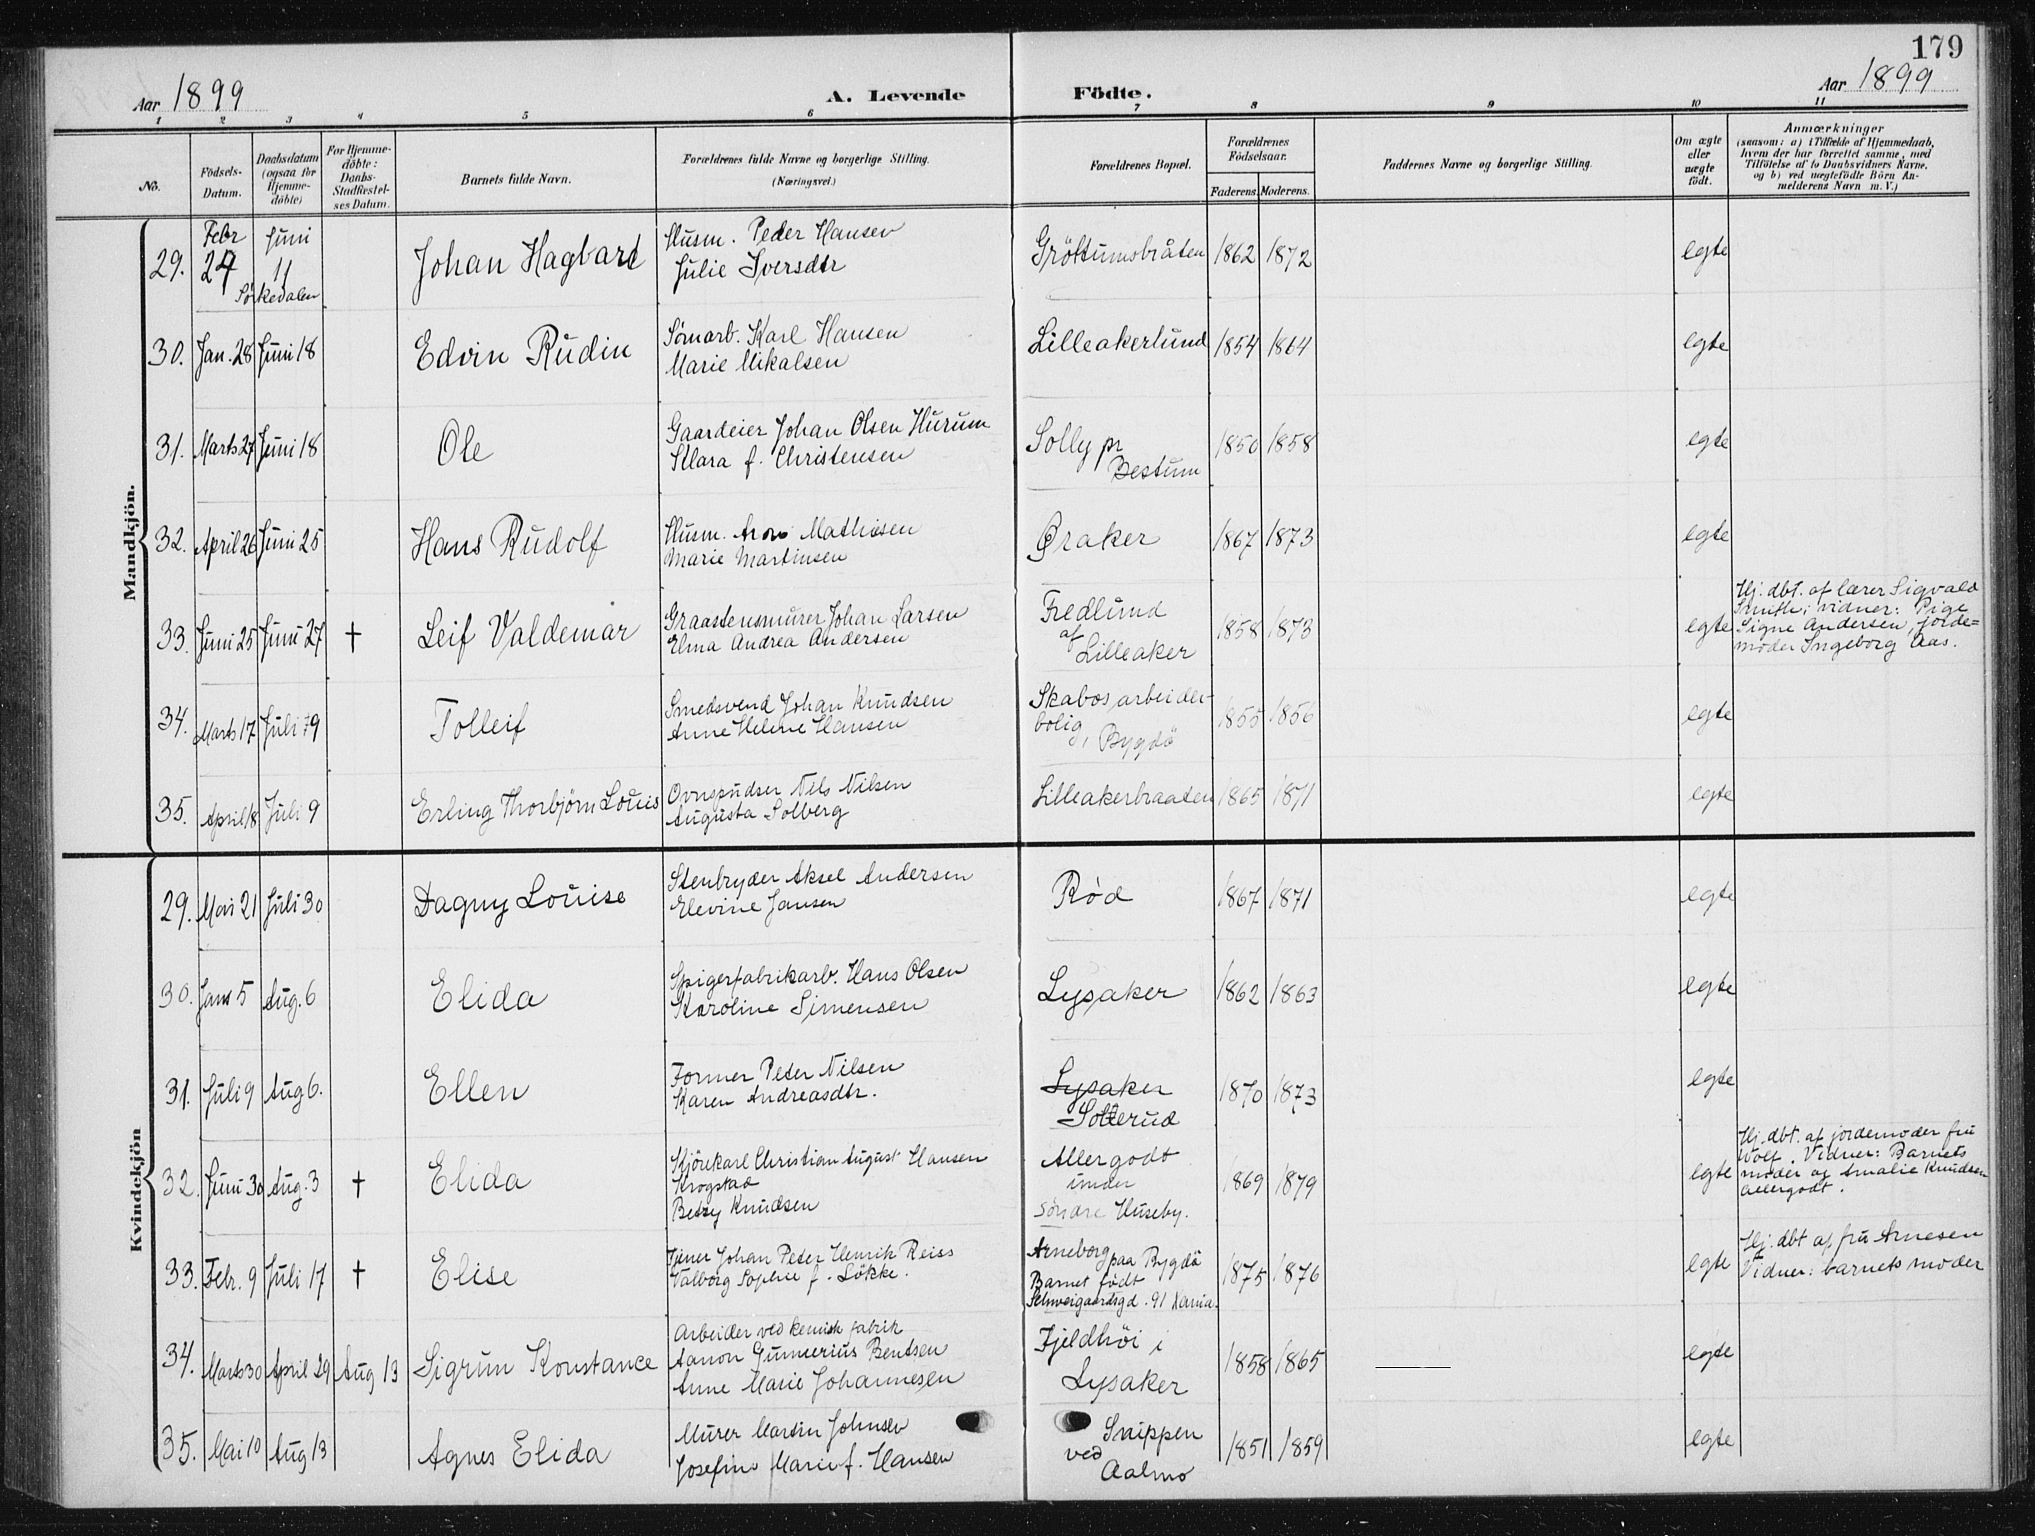 179
Aar 1899
A. Levende Födte.
Aar 1899
1 2 3 4 5 6 7 8 9 10 11
No.
Födsels-Datum.
Daabsdatum (ogsaa for Hjemme-döbte)
For Hjemme-döbte: Daabs-Stadfæstel-ses Datum.
Barnets fulde Navn.
Forældrenes fulde Navne og borgerlige Stilling.
(Næringsvei.)
Forældrenes Bopæl.
Forældrenes Födselsaar.
Faderens. Moderens.
Faddernes Navne og borgerlige Stilling.
Om ægte eller uægte födt.
Anmærkninger
(saasom: a) i Tilfælde af Hjemmedaab,
hvem der har forrettet samme, med
Tilföielse af to Daabsvidners Navne,
og b) ved uægtefödte Börn An-
melderens Navn m. V.)
Mandkjön.
29. Febr 27 Juni 11 Sørkedalen Johan Hagbart Husm. Peder Hansen Grøttumsbråten 1862 1872 egte
Julie Iversdtr
30. Jan. 28 Juni 18 Edvin Rudin Karl Hansen Lilleakerlund 1854 1864 egte
Marie Mikalsen
31. Marts 27 Juni 18 Ole Gaardeier Johan Olsen Hurum Solly pr 1850 1858 egte
Klara f. Christensen Bestum
32. April 26 Juni 25 Hans Rudolf Husm. Aron Mathisen Øraker 1867 1873 egte
Marie Martinsen
33. Juni 25 Juni 27 † Leif Valdemar Graastensmurer Johan Larsen Fredlund 1858 1873 egte Hj. dbt. af lærer Sigvald
Elma Andrea Andersen af Lilleaker Smith; vidner: Pige
Signe Andersen, jorde=
moder Ingeborg Aas.
34. Marts 17 Juli 9 Tolleif Smedsvend Johan Knudsen Skabos arbeider- 1855 1856 egte
Anne Helene Hansen bolig, Bygdö
35. April 18 Juli 9 Erling Thorbjörn Louis Ovnspudser Nils Nilsen Lilleakerbraaten 1865 1871 egte
Augusta Solberg
Kvindekjön
29. Mai 21 Juli 30 Dagny Louise Stenbryder Aksel Andersen Rød 1867 1871 egte
Elevine Jansen
30. Jan 5 Aug. 6 Elida Spigerfabrikarb. Hans Olsen Lysaker 1862 1863 egte
Karoline Simensen
31. Juli 9 Aug 6. Ellen Former Peter Nilsen Lysaker 1870 1873 egte
Karen Andreasdtr. Sollerud
32. Juni 30 Aug. 3 † Elida Kjörekarl Christian August Hansen Allergodt 1869 1879 egte Hj. dbt. af jordemoder fru
Krogstad under Wolf. Vidner: Barnets
Betzy Knudsen söndre Huseby. moder og Amalie Knudsen
Allergodt.
33. Febr. 9 Juli 17 † Elise Tjener Johan Peter Henrik Reiss Arneborg paa Bygdö 1875 1876 egte Hj. dbt af fru Arnesen
Valborg Sophie f. Løkke. Barnet födt Vidner: barnets moder
Schweigaardsgd. 91 Xania.
34. Marts 30 April 29 Aug 13 Sigrun Konstance Arbeider ved kemisk fabrik Fjeldhöi i 1858 1865 egte
Aanon Gunnerius Bentsen Lysaker
Anne Marie Johannesen
35. Mai 10 Aug 13 Agnes Elida Murer Martin Johnsen Snippen 1851 1859 egte
Josefine Marie f. Hansen ved Aalmo